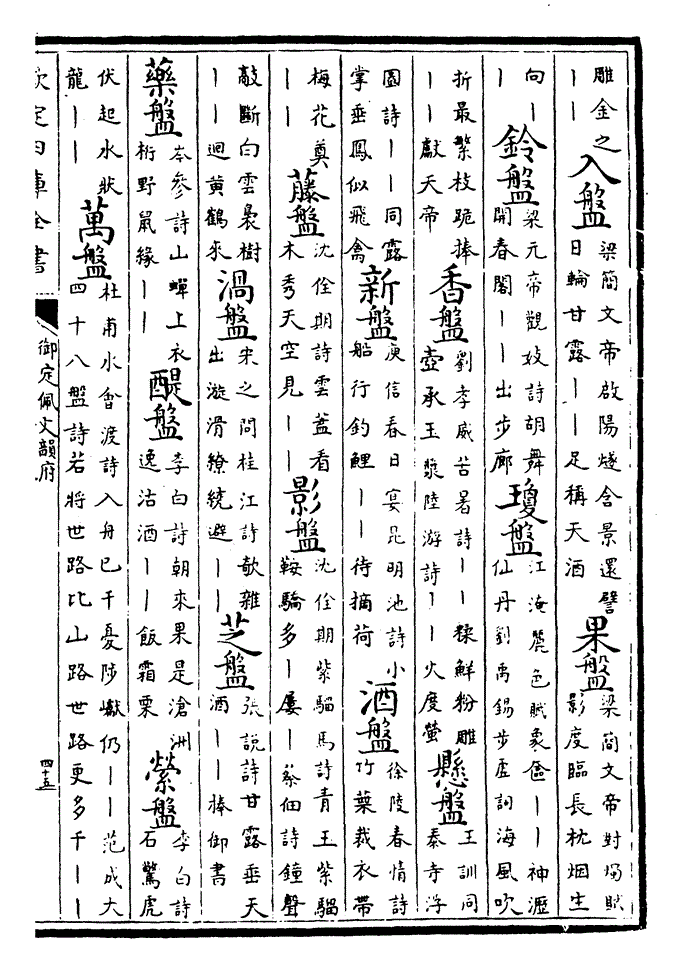 雕金之——入盤梁簡文帝啟陽燧含景還譬日輪甘露——足稱天酒果盤梁簡文帝對燭賦影度臨長枕烟生
向——鈴盤梁元帝觀妓詩胡舞開春閣——出步廊瓊盤江淹麗色賦象奩——神瀝仙丹劉禹錫步虛詞海風吹
折最繁枝跪捧——獻天帝香盤劉孝威苦暑詩——糅鮮粉雕壺承玉漿陸游詩——火度螢懸盤王訓同泰寺浮
圖詩——同露掌垂鳳似飛禽新盤庾信春日宴昆明池詩小船行釣鯉——待摘荷酒盤徐陵春情詩竹葉裁衣帶
梅花奠——藤盤沈佺期詩雲蓋看木秀天空見——影盤沈佺期紫騮馬詩青玉紫騮鞍驕多—屢—蔡佃詩鐘聲
敲斷白雲裊樹——迴黃鶴來渦盤宋之問桂江詩欹離出漩滑繚繞避——芝盤張說詩甘露垂天酒——捧御書
藥盤岑參詩山蟬上衣桁野鼠緣——醍盤李白詩朝來果是滄洲逸沽酒——飯霜栗縈盤李白詩石驚虎
伏起水狀龍——萬盤杜甫水會渡詩入舟已千憂陟巘仍——范成大四十八盤詩若將世路比山路世路更多千——
欽定四庫全書
御定佩文韻府
四十五